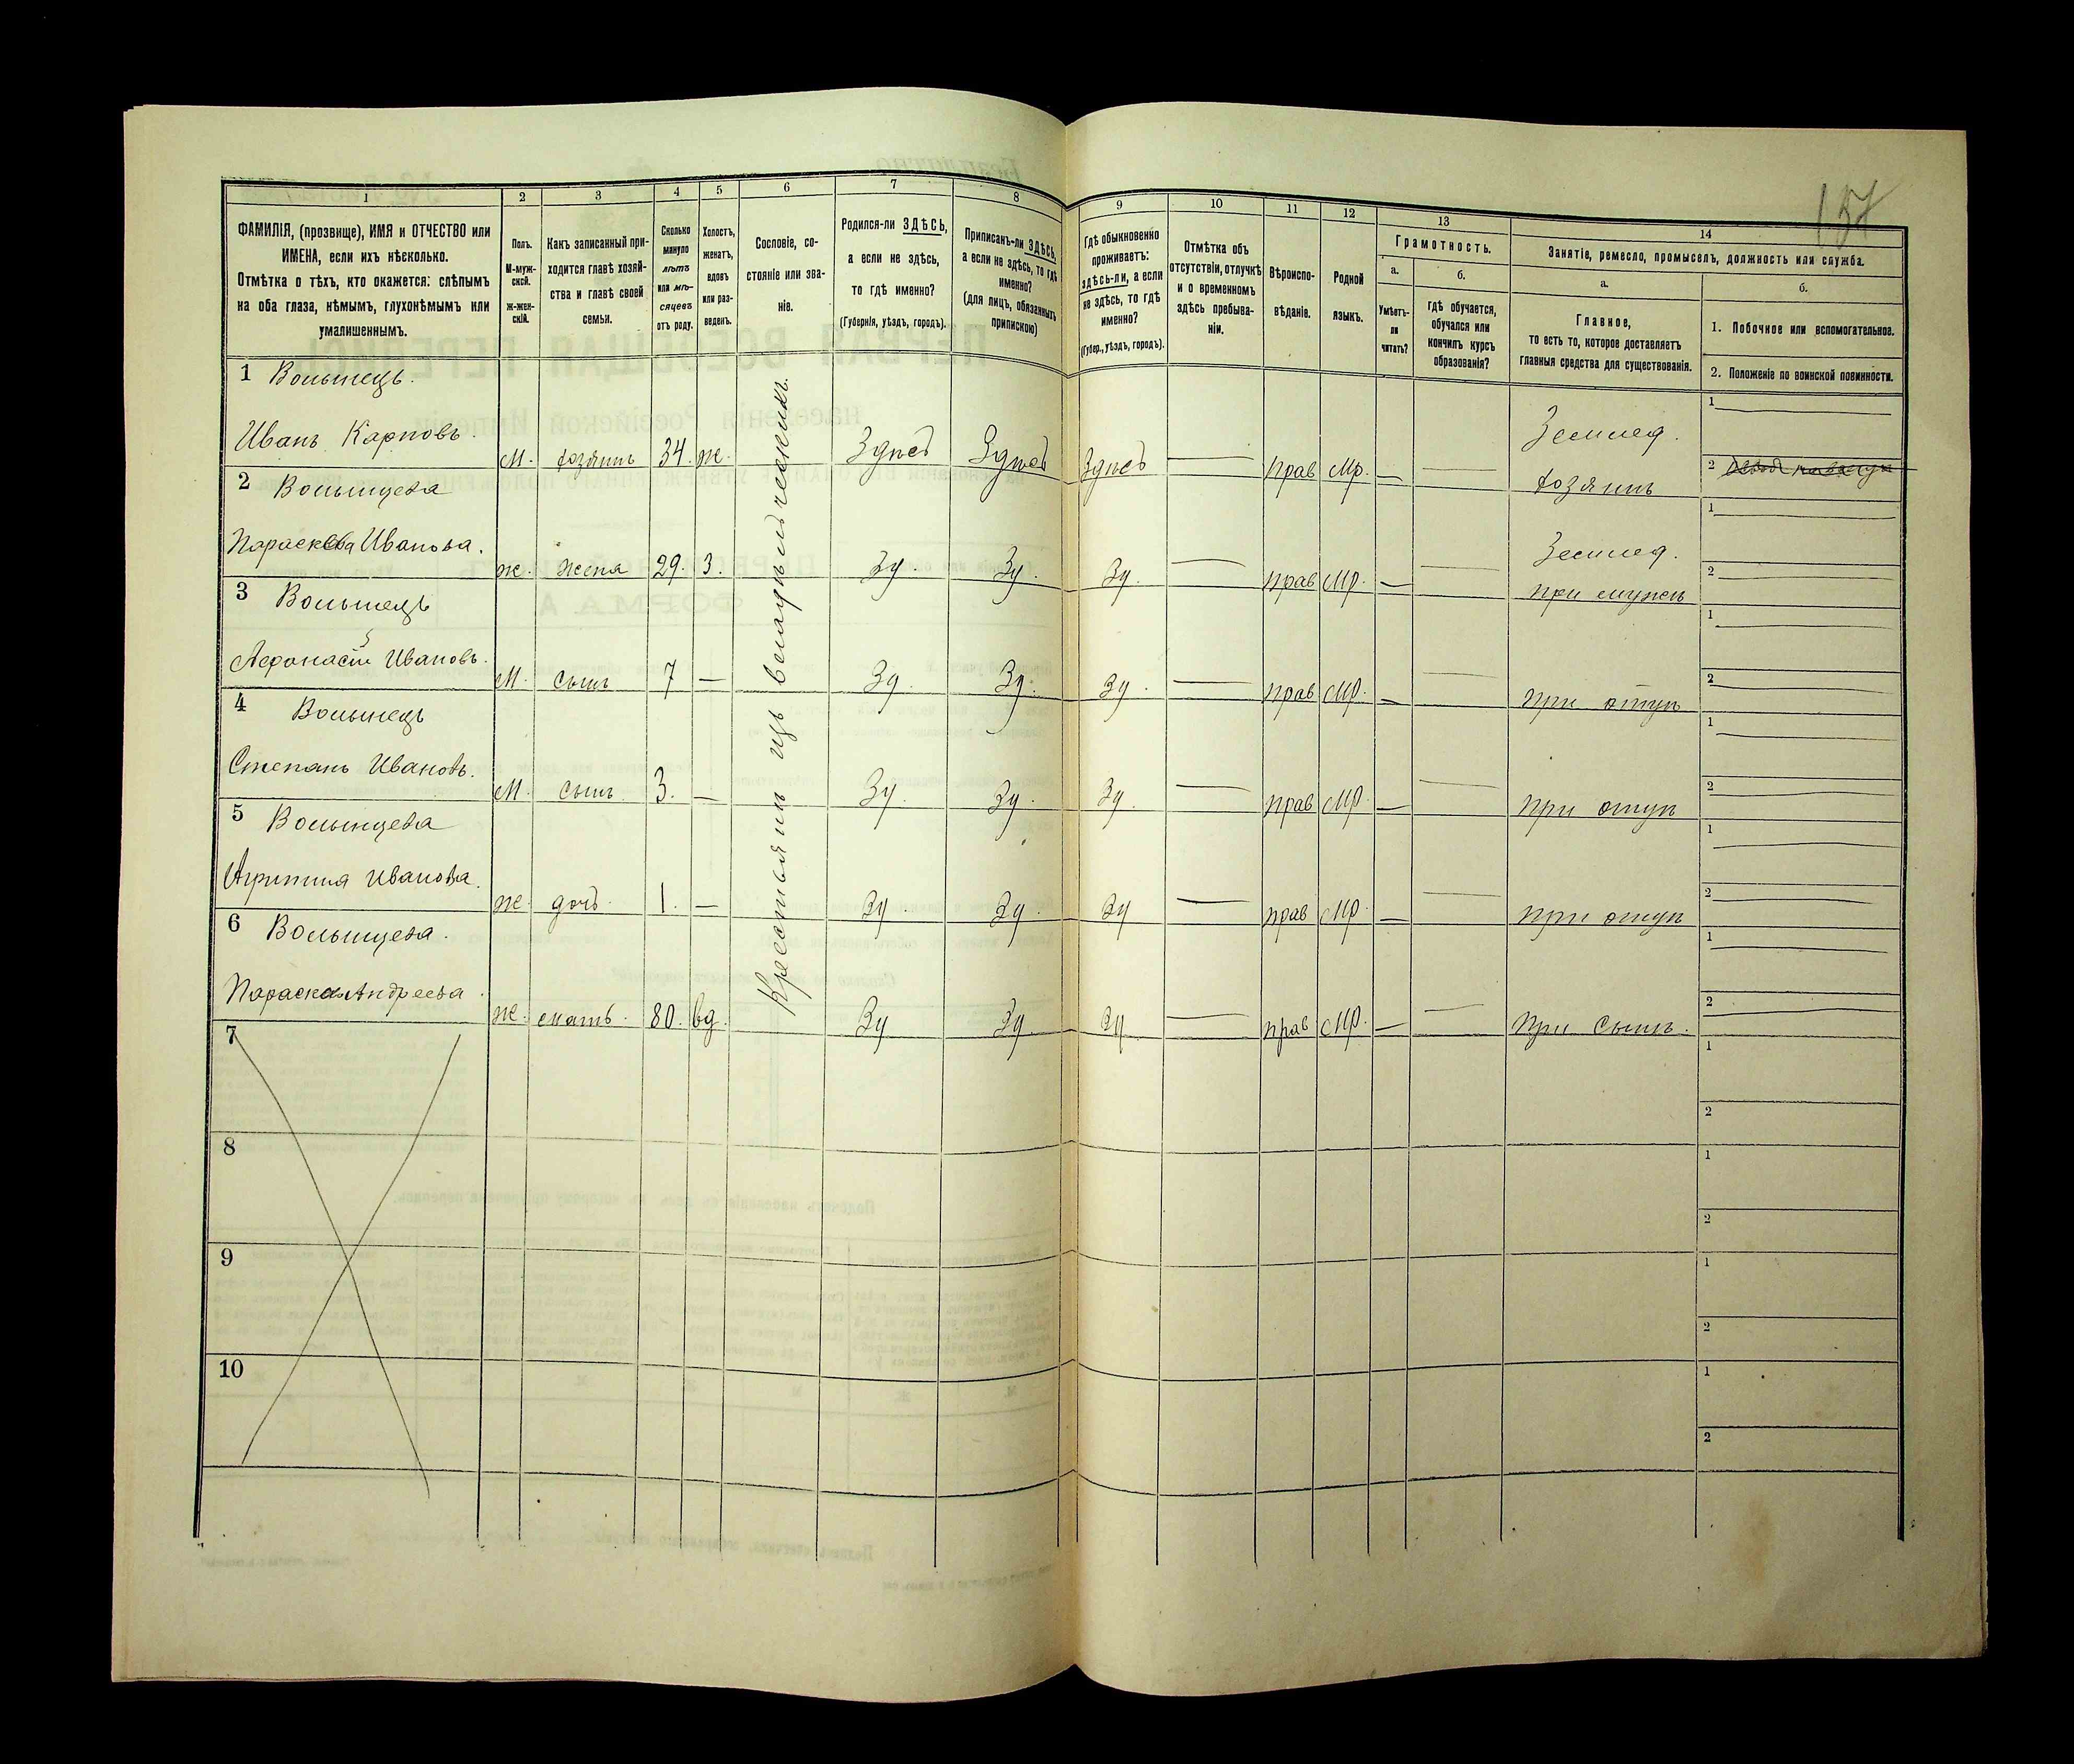 157
1
2
3
4
5
6
7
8
9
10
11
12
13
14
ФАМИЛІЯ, (прозвище), ИМЯ и ОТЧЕСТВО или
ИМЕНА, если ихъ нѣсколько.
Отмѣтка о тѣхъ, кто окажется: слѣпымъ
на оба глаза, нѣмымъ, глухонѣмымъ или
умалишеннымъ.
Полъ.
М-муж-
ской.
ж-жен-
скій.
Какъ записанный при-
ходится главѣ хозяй-
ства и главѣ своей
семьи.
Сколько
минуло
лѣтъ
или мѣ-
сяцевъ
отъ роду.
Холостъ,
женатъ,
вдовъ
или раз-
веденъ.
Сословіе, со-
стояніе или зва-
ніе.
Родился-ли ЗДѢСЬ,
а если не здѣсь,
то гдѣ именно?
(Губернія, уѣздъ, городъ).
Приписанъ-ли ЗДѢСЬ,
а если не здѣсь, то гдѣ
именно?
(для лицъ, обязанныхъ
припискою)
Гдѣ обыкновенно
проживаетъ:
здѣсь-ли, а если
не здѣсь, то гдѣ
именно?
(Губер., уѣздъ, городъ).
Отмѣтка объ
отсутствіи, отлучкѣ
и о временномъ
здѣсь пребыва-
ніи.
Вѣроиспо-
вѣданіе.
Родной
языкъ.
Грамотность.
а.
Умѣетъ-
ли
читать?
б.
Гдѣ обучается,
обучался или
кончилъ курсъ
образованія?
Занятіе, ремесло, промыселъ, должность или служба.
а.
Главное,
то есть то, которое доставляетъ
главныя средства для существованія.
б.
1. Побочное или вспомогательное.
2. Положеніе по воинской повинности.
Крестьянинъ изъ владѣльческихъ.
1 Волынецъ.
Иванъ Карповъ. М. хозяинъ 34. ж. Здѣсь Здѣсь Здѣсь — прав Мр. — — Землед. хозяинъ 1 2
2 Волынцева
Параскева Иванова. ж. жена 29. З. Зд. Зд. Зд. — прав Мр. — — Землед. при мужѣ 1 2
3 Волынецъ
Афонасій Ивановъ. М. сынъ 7 — Зд. Зд. Зд. — прав Мр. — — при отцѣ 1 2
4 Волынецъ
Степанъ Ивановъ. М. сынъ 3. — Зд. Зд. Зд. — прав Мр. — — при отцѣ 1 2
5 Волынцева
Агрипина Иванова. ж. дочь. 1. — Зд. Зд. Зд — прав Мр. — — при отцѣ 1 2
6 Волынцева.
Параска Андреева. ж. мать. 80. вд. Зд Зд. Зд — прав Мр. — — при сынѣ. 1 2
7 1 2
8 1 2
9 1 2
10 1 2